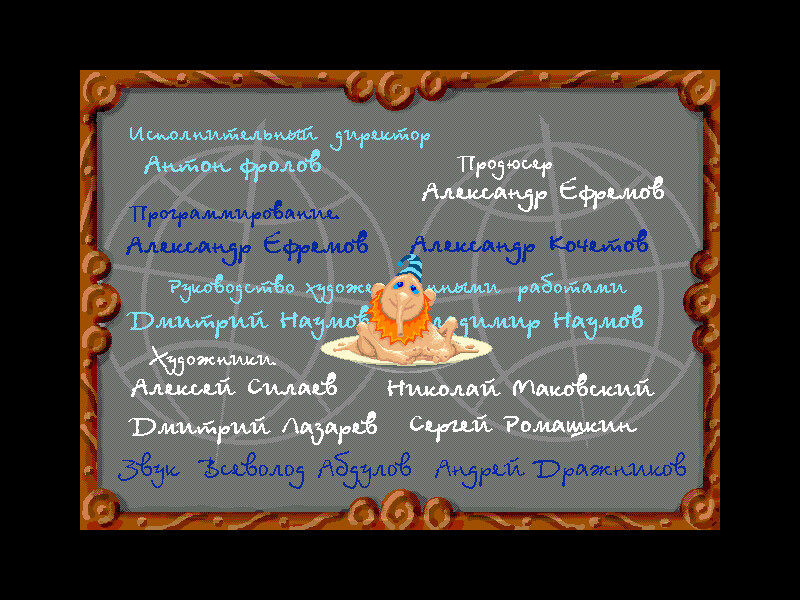 Исполнительный директор
Антон фролов
Продюсер
Александр Ефремов
Программирование
Александр Ефремов Александр Кочетов
Руководство работами
Дмитрий Наумов Наумов
Художники
Алексей Силаев Николай Маковский
Дмитрий Лазарев Сергей Ромашкин
Звук Всеволод Абдулов Андрей Дражников